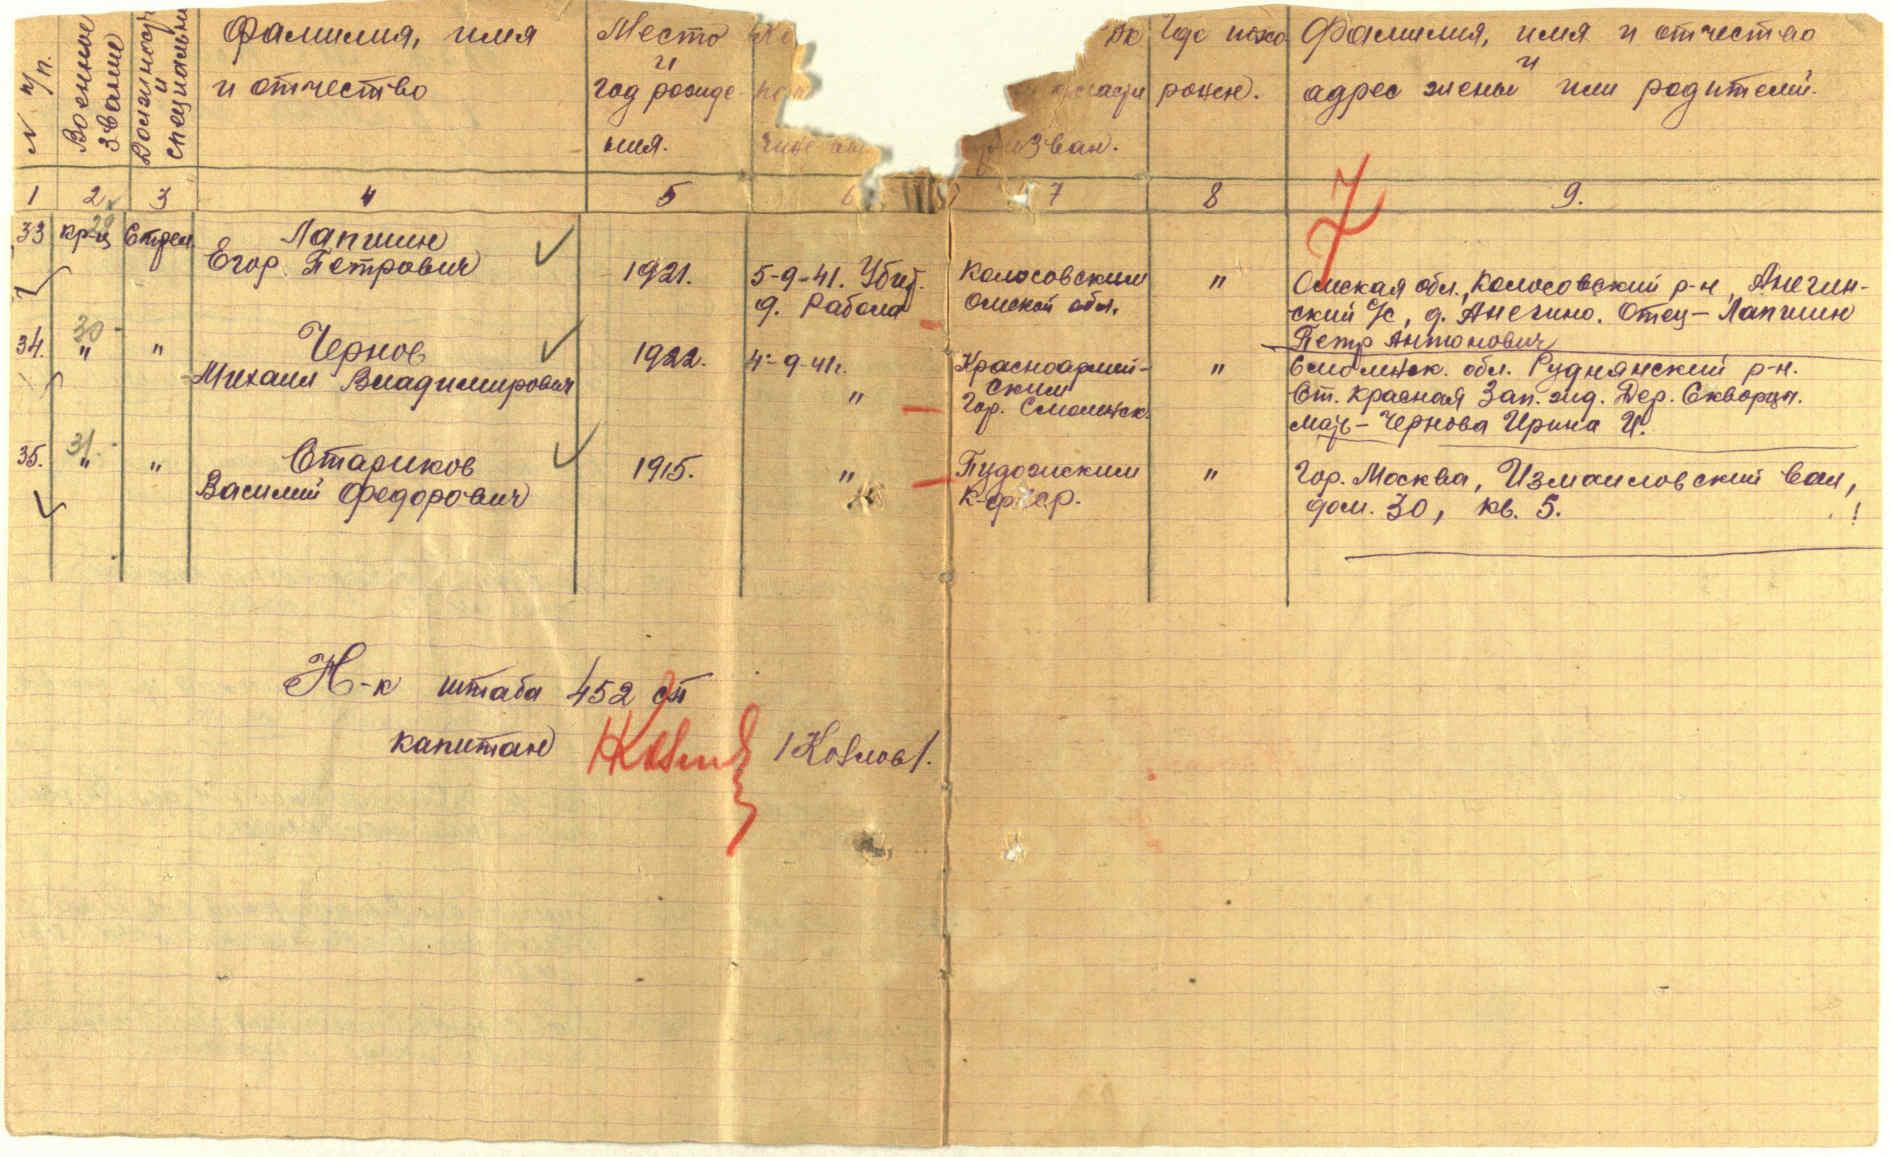 N п/п.
Военное звание
Должность и специальн
Фамилия, имя
и отчество
Место
и
год рожде-
ния.
призван.
Где похо
ронен.
Фамилия, имя и отчество
и
адрес жены или родителей.
1 2 3 4 5 6 7 8 9.
7
33 кр-ц Стрел. Лапшин
29
Егор Петрович
1921.
5-9-41. Убит.
д. Рабола
Колосовским
Омской обл.
"
Омская обл., Колосовский р-н, Анегин-
ский с/с, д. Анегино. Отец - Лапшин
Петр Антонович
30
34. " " Чернов
Михаил Владимирович
1922.
4-9-41г.
"
Красноармей-
ским
Гор. Смоленск.
"
Смоленск. обл. Руднянский р-н.
Ст. Красная Зап. жид. Дер. Скворцы.
Мать - Чернова Ирина И.
31.
35. " " Стариков
Василий Федорович
1915.
"
Пудожским
К-ф сср.
"
Гор. Москва, Измаиловский вал,
дом. 30, кв. 5.
Н-к штаба 452 сп
капитан Козлов /Козлов/.